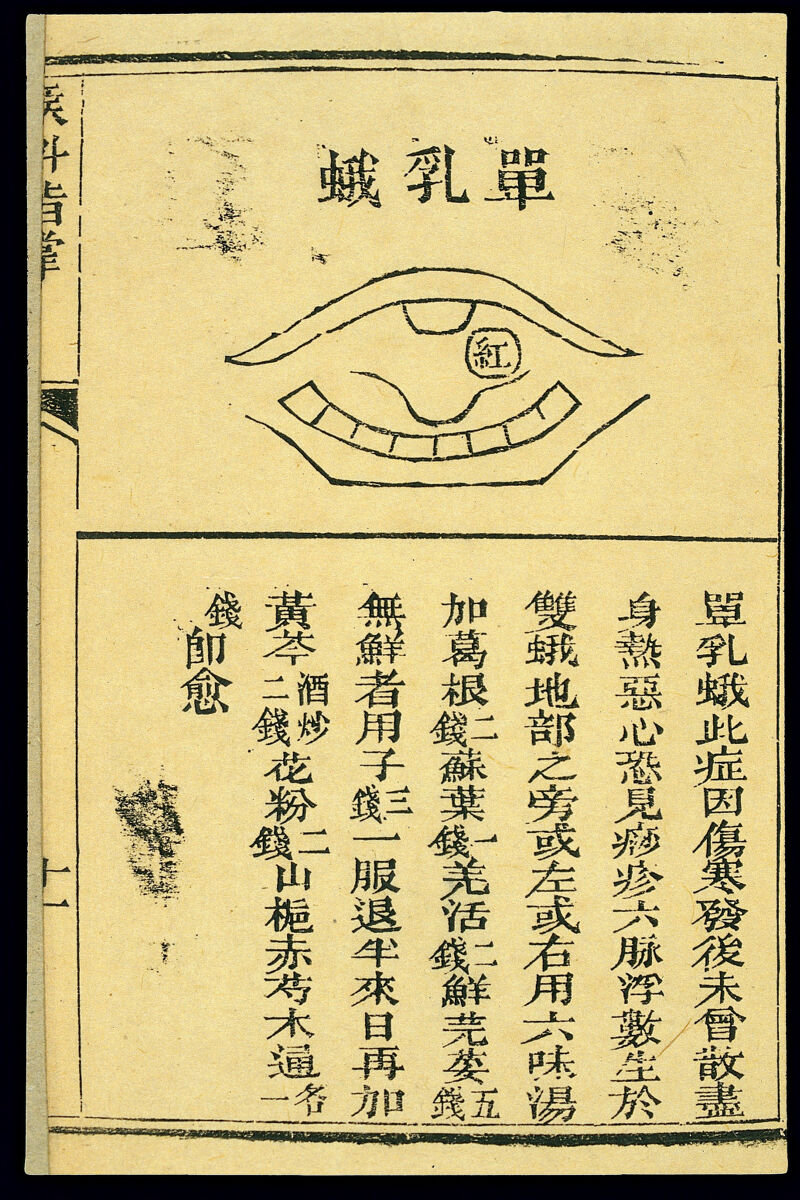 單乳蛾
紅
單乳蛾此症因傷寒發後未曾散盡
身熱惡心恐見痧疹六脉浮數生於
雙蛾地部之旁或左或右用六味湯
加葛根二錢蘇葉一錢羌活二錢鮮芫荽五錢
無鮮者用子三錢一服退半來日再加
黃芩酒炒二錢花粉二錢山梔赤芍木通各一
錢即愈
喉科指掌
十一